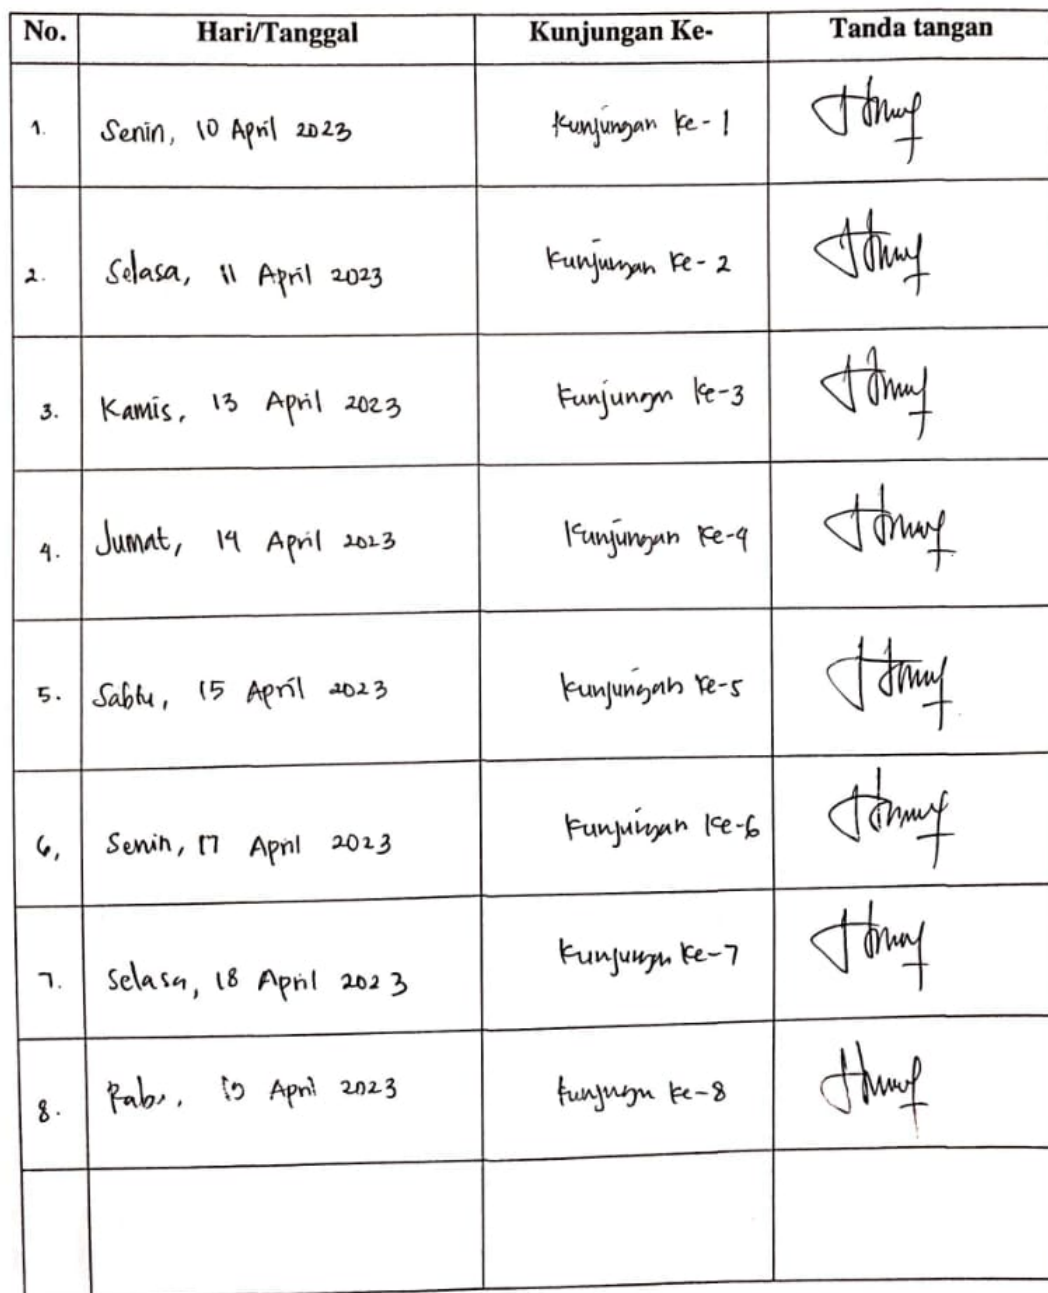 No. Hari/Tanggal Kunjungan Ke- Tanda tangan
1. Senin, 10 April 2023 Kunjungan Ke-1
2. Selasa, 11 April 2023 Kunjungan Ke-2
3. Kamis, 13 April 2023 Kunjungan Ke-3
4. Jumat, 14 April 2023 Kunjungan Ke-4
5. Sabtu, 15 April 2023 Kunjungan Ke-5
6, Senin, 17 April 2023 Kunjungan Ke-6
7. Selasa, 18 April 2023 Kunjungan Ke-7
8. Rabu, April 2023 Kunjungan Ke-8